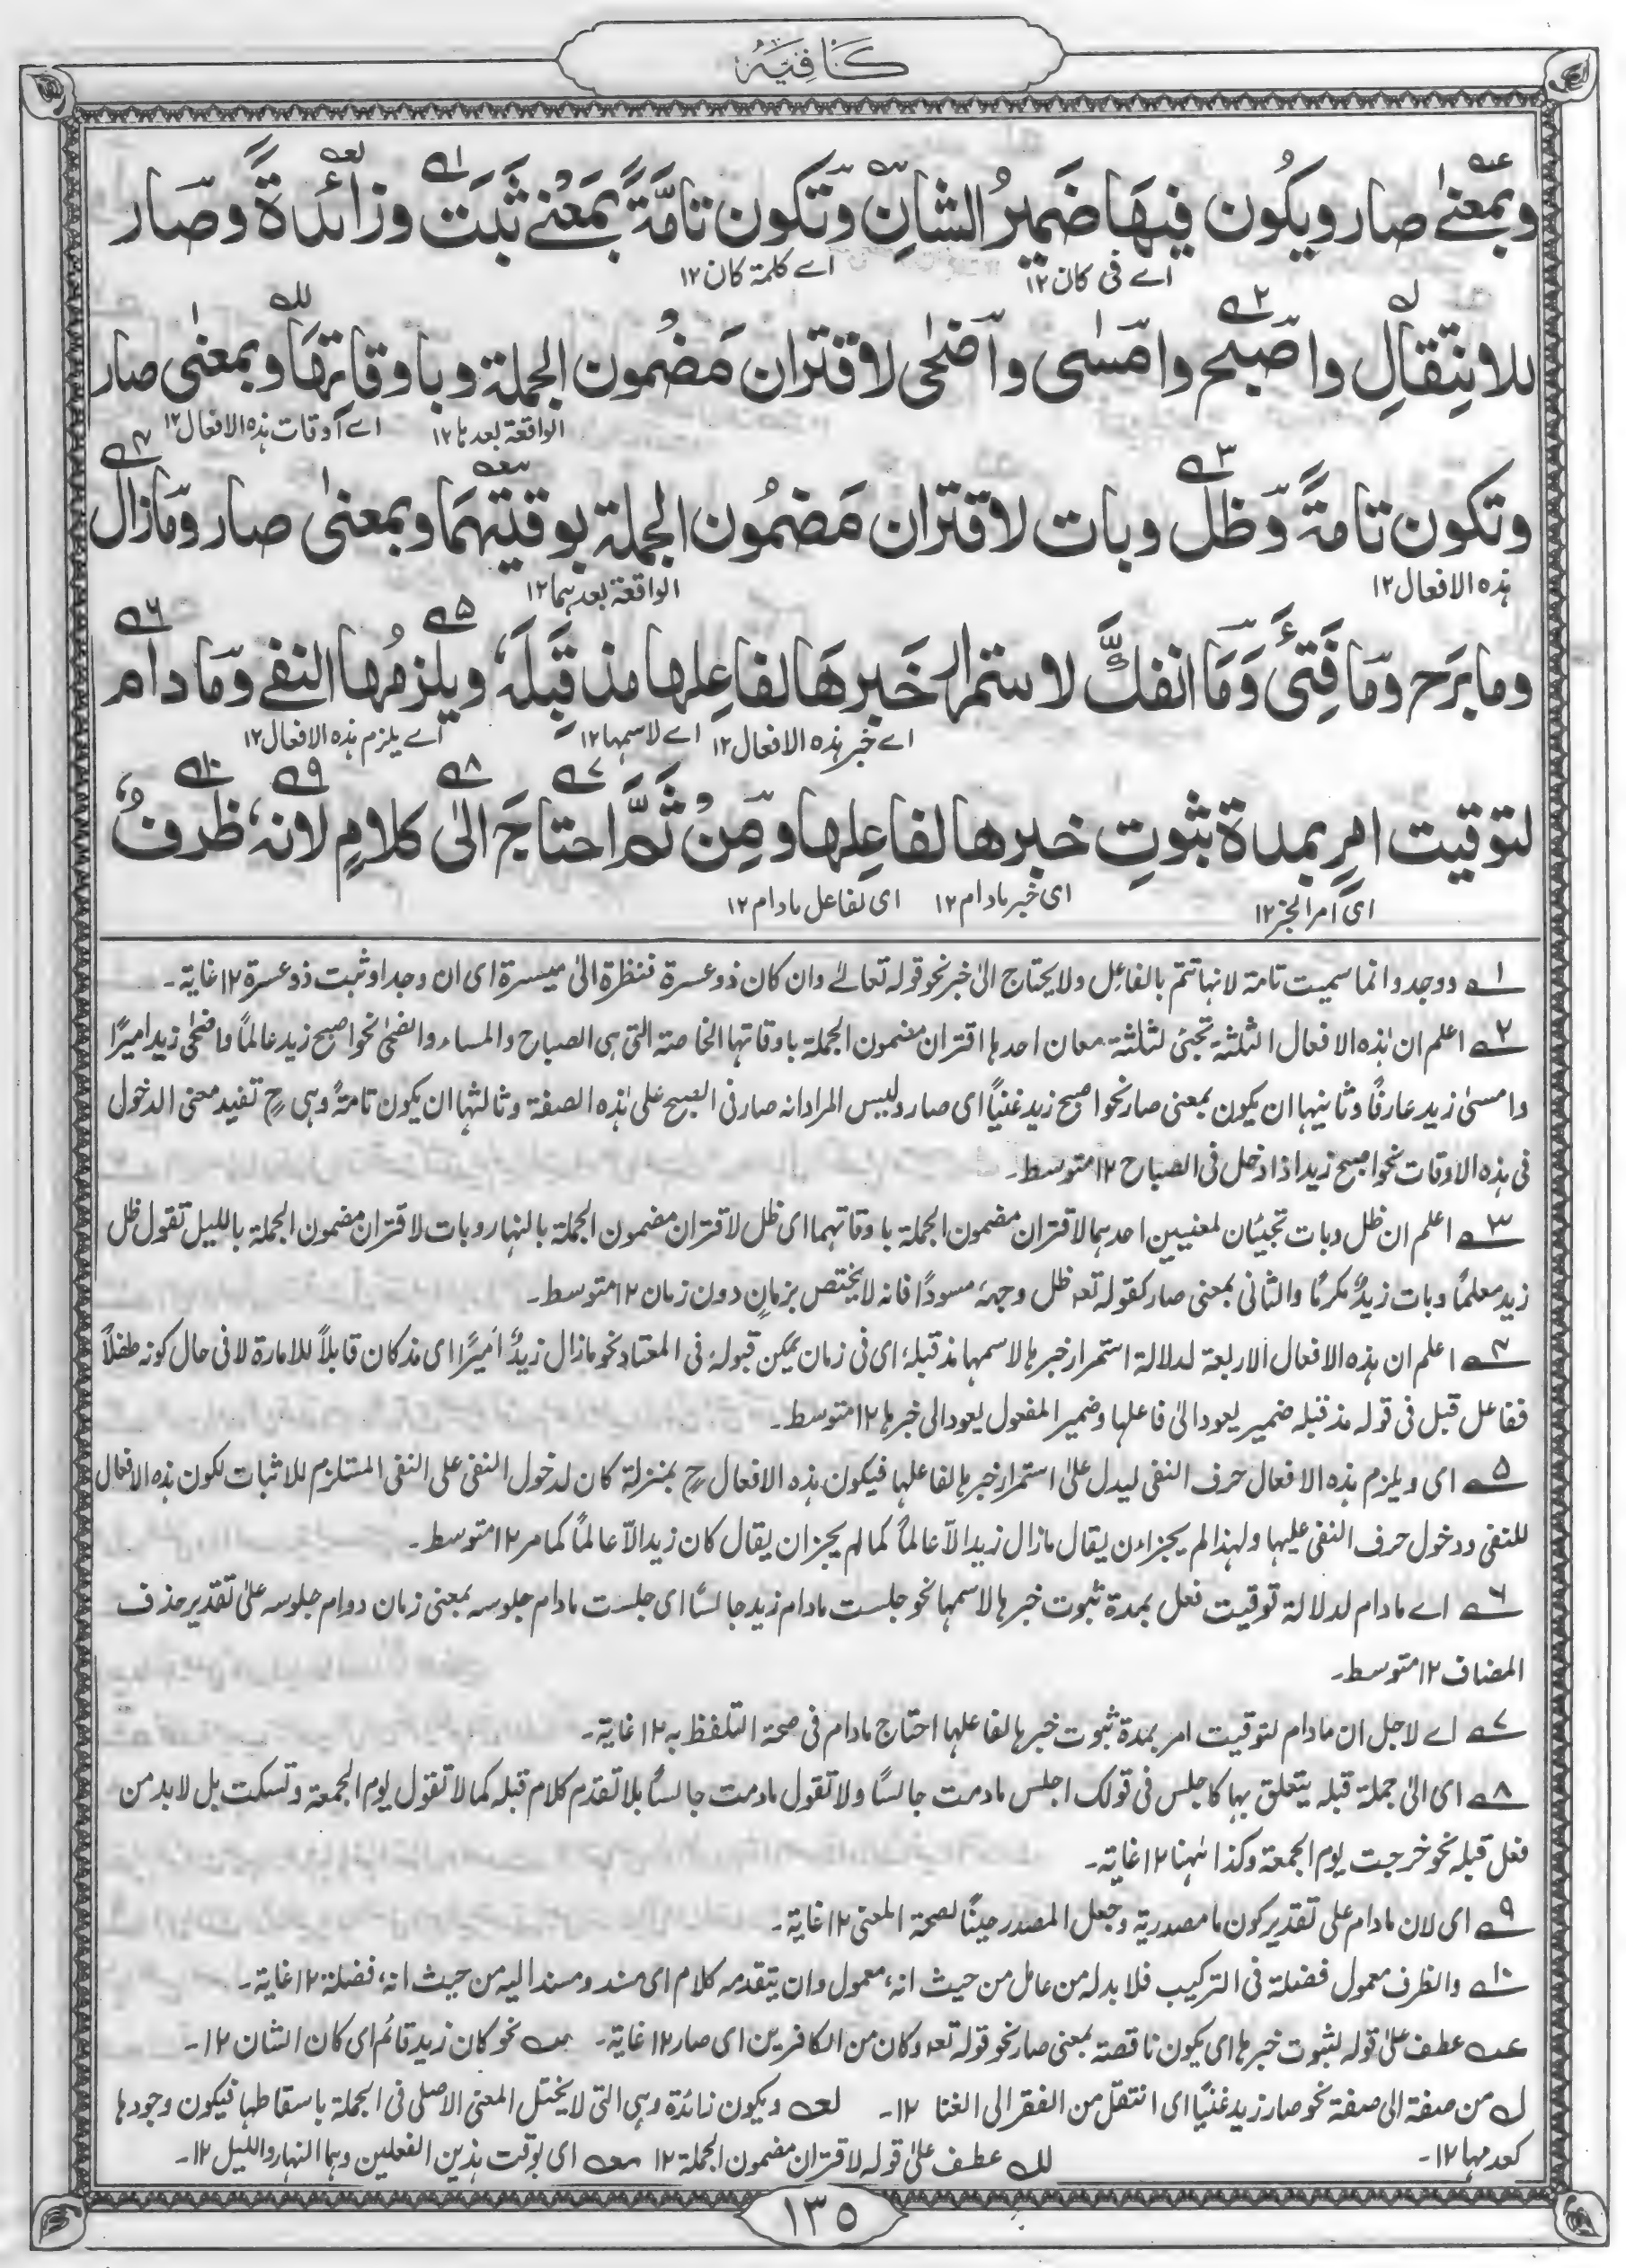 كَافِيَهْ
وبمعنىٰ صار ويكُون فيهَا ضَمِيرُ الشانِ وَتكون تامَّةً بمَعْنٰے ثَبَتَ وزائدةً وصَار
اے فى كان١٢ اے كلمة كان١٢
للانتِقالِ واَصْبَح واَمسٰى واَضحٰى لاقتران مَضمُون الجملة وباوقاتِهَا وبمعنٰى صار
الواقعة بعدہا١٢ اے اوقات ہذه الافعال١٢
وتكون تامةً وَظل وبات لاقتران مَضمُون الجملة بوقتيهمَا وبمعنىٰ صار ومَازال
ہذه الافعال١٢ الواقعة بعدہما١٢
وما برَح ومَا فَتِئَ وَمَا انفكَّ لاستمرارِ خَبرهَا لفاعِلها مذ قَبِلَهٗ ويلزمُها النفے ومَا دام
اے خبر ہذه الافعال١٢ اے لاسمہا١٢ اے يلزم ہذه الافعال١٢
لتوقيت امرٍ بمدة ثبوتِ خبرها لفاعِلها ومِنْ ثَمَّ احتاجَ الىٰ كلامٍ لانهٗ ظرفٌ
اى امر الجز١٢ اى خبر مادام١٢ اى لفاعل مادام١٢
١ـه ووجد وانما سميت تامة لانہا تتم بالفاعل ولا يحتاج الىٰ خبر نحو قوله تعالےٰ وان كان ذو عسرة فنظرة الىٰ ميسرة اى ان وجد او ثبت ذو عسرة ١٢ غاية۔
٢ـه اعلم ان ہٰذه الافعال الثلثة تجئ لثلثة معان احدہا اقتران مضمون الجملة باوقاتہا الخاصة التى ہى الصباح والمساء والضحىٰ نحو اصبح زيد عالمًا واضحٰى زيد اميرًا
وامسىٰ زيد عارفًا وثانيہا ان يكون بمعنى صار نحو اصبح زيد غنيًا اى صار وليس المراد انه صار فى الصبح على ہٰذه الصفة وثالثہا ان يكون تامةً وہى ح تفيد معنى الدخول
فى ہذه الاوقات نحو اصبح زيد اذا دخل فى الصباح ١٢ متوسط۔
٣ـه اعلم ان ظل وبات تجيئان لمعنيين احدہما لاقتران مضمون الجملة باوقاتہما اى ظل لاقتران مضمون الجملة بالنہار وبات لاقتران مضمون الجملة بالليل تقول ظل
زيد معلمًا وبات زيدٌ مكرمًا والثانى بمعنى صار كقوله تعه ظل وجہهٗ مسودًا فانه لا يختص بزمانٍ دون زمان ١٢ متوسط۔
٤ـه اعلم ان ہذه الافعال الاربعة لدلالة استمرار خبرہا لاسمہا مذ قبلهٗ اى فى زمان يمكن قبولهٗ فى المعتاد نحو مازال زيدٌ اَميرًا اى مذ كان قابلاً للامارة لا فى حال كونه طفلاً
ففاعل قبل فى قوله مذ قبله ضمير يعود الىٰ فاعلہا وضمير المفعول يعود الى خبرہا ١٢ متوسط۔
٥ـه اى ويلزم ہذه الافعال حرف النفى ليدل علىٰ استمرار خبرہا لفاعلہا فيكون ہذه الافعال ح بمنزلة كان لدخول النفى على النفى المستلزم للاثبات لكون ہذه الافعال
للنفى ودخول حرف النفى عليہا ولہذا لم يجز ان يقال مازال زيد الاّ عالماً كما لم يجز ان يقال كان زيد الاّ عالمًا كما مر ١٢ متوسط۔
٦ـه اے مادام لدلالة توقيت فعل بمدة ثبوت خبرہا لاسمہا نحو جلست مادام زيد جالسًا اى جلست مادام جلوسه بمعنى زمان دوام جلوسه علىٰ تقدير حذف
المضاف ١٢ متوسط۔
٧ـه اے لاجل ان مادام لتوقيت امر بمدة ثبوت خبرہا لفاعلہا احتاج مادام فى صحة التلفظ به ١٢ غاية۔
٨ـه اى الىٰ جملة قبله يتعلق بہا كاجلس فى قولك اجلس مادمت جالسًا ولا تقول مادمت جالسًا بلا تقدم كلام قبله كما لا تقول يوم الجمعة وتسكت بل لابد من
فعل قبله نحو خرجت يوم الجمعة وكذا ہٰہنا ١٢ غاية۔
٩ـه اى لان مادام على تقدير كون ما مصدرية وجعل المصدر حينًا لصحة المعنى ١٢ غاية۔
١٠ـه والظرف معمول فضلة فى التركيب فلابد له من عامل من حيث انهٗ معمول وان يتقدمه كلام اى مسند ومسند اليه من حيث انهٗ فضلة ١٢ غاية۔
عـه عطف علىٰ قوله لثبوت خبرہا اى يكون ناقصة بمعنى صار نحو قوله تعه وكان من الكافرين اى صار ١٢ غاية۔ سـه نحو كان زيد قائم اى كان الشان ١٢۔
لـه من صفة الى صفة نحو صار زيد غنيًا اى انتقل من الفقر الى الغنا ١٢۔ لعـه ويكون زائدة وہى التى لا يختل المعنى الاصلى فى الجملة باسقاطہا فيكون وجودہا
كعدمہا ١٢۔ للـه عطف علىٰ قوله لاقتران مضمون الجملة ١٢ معـه اى بوقت ہذين الفعلين وہما النہار والليل ١٢۔
١٣٥